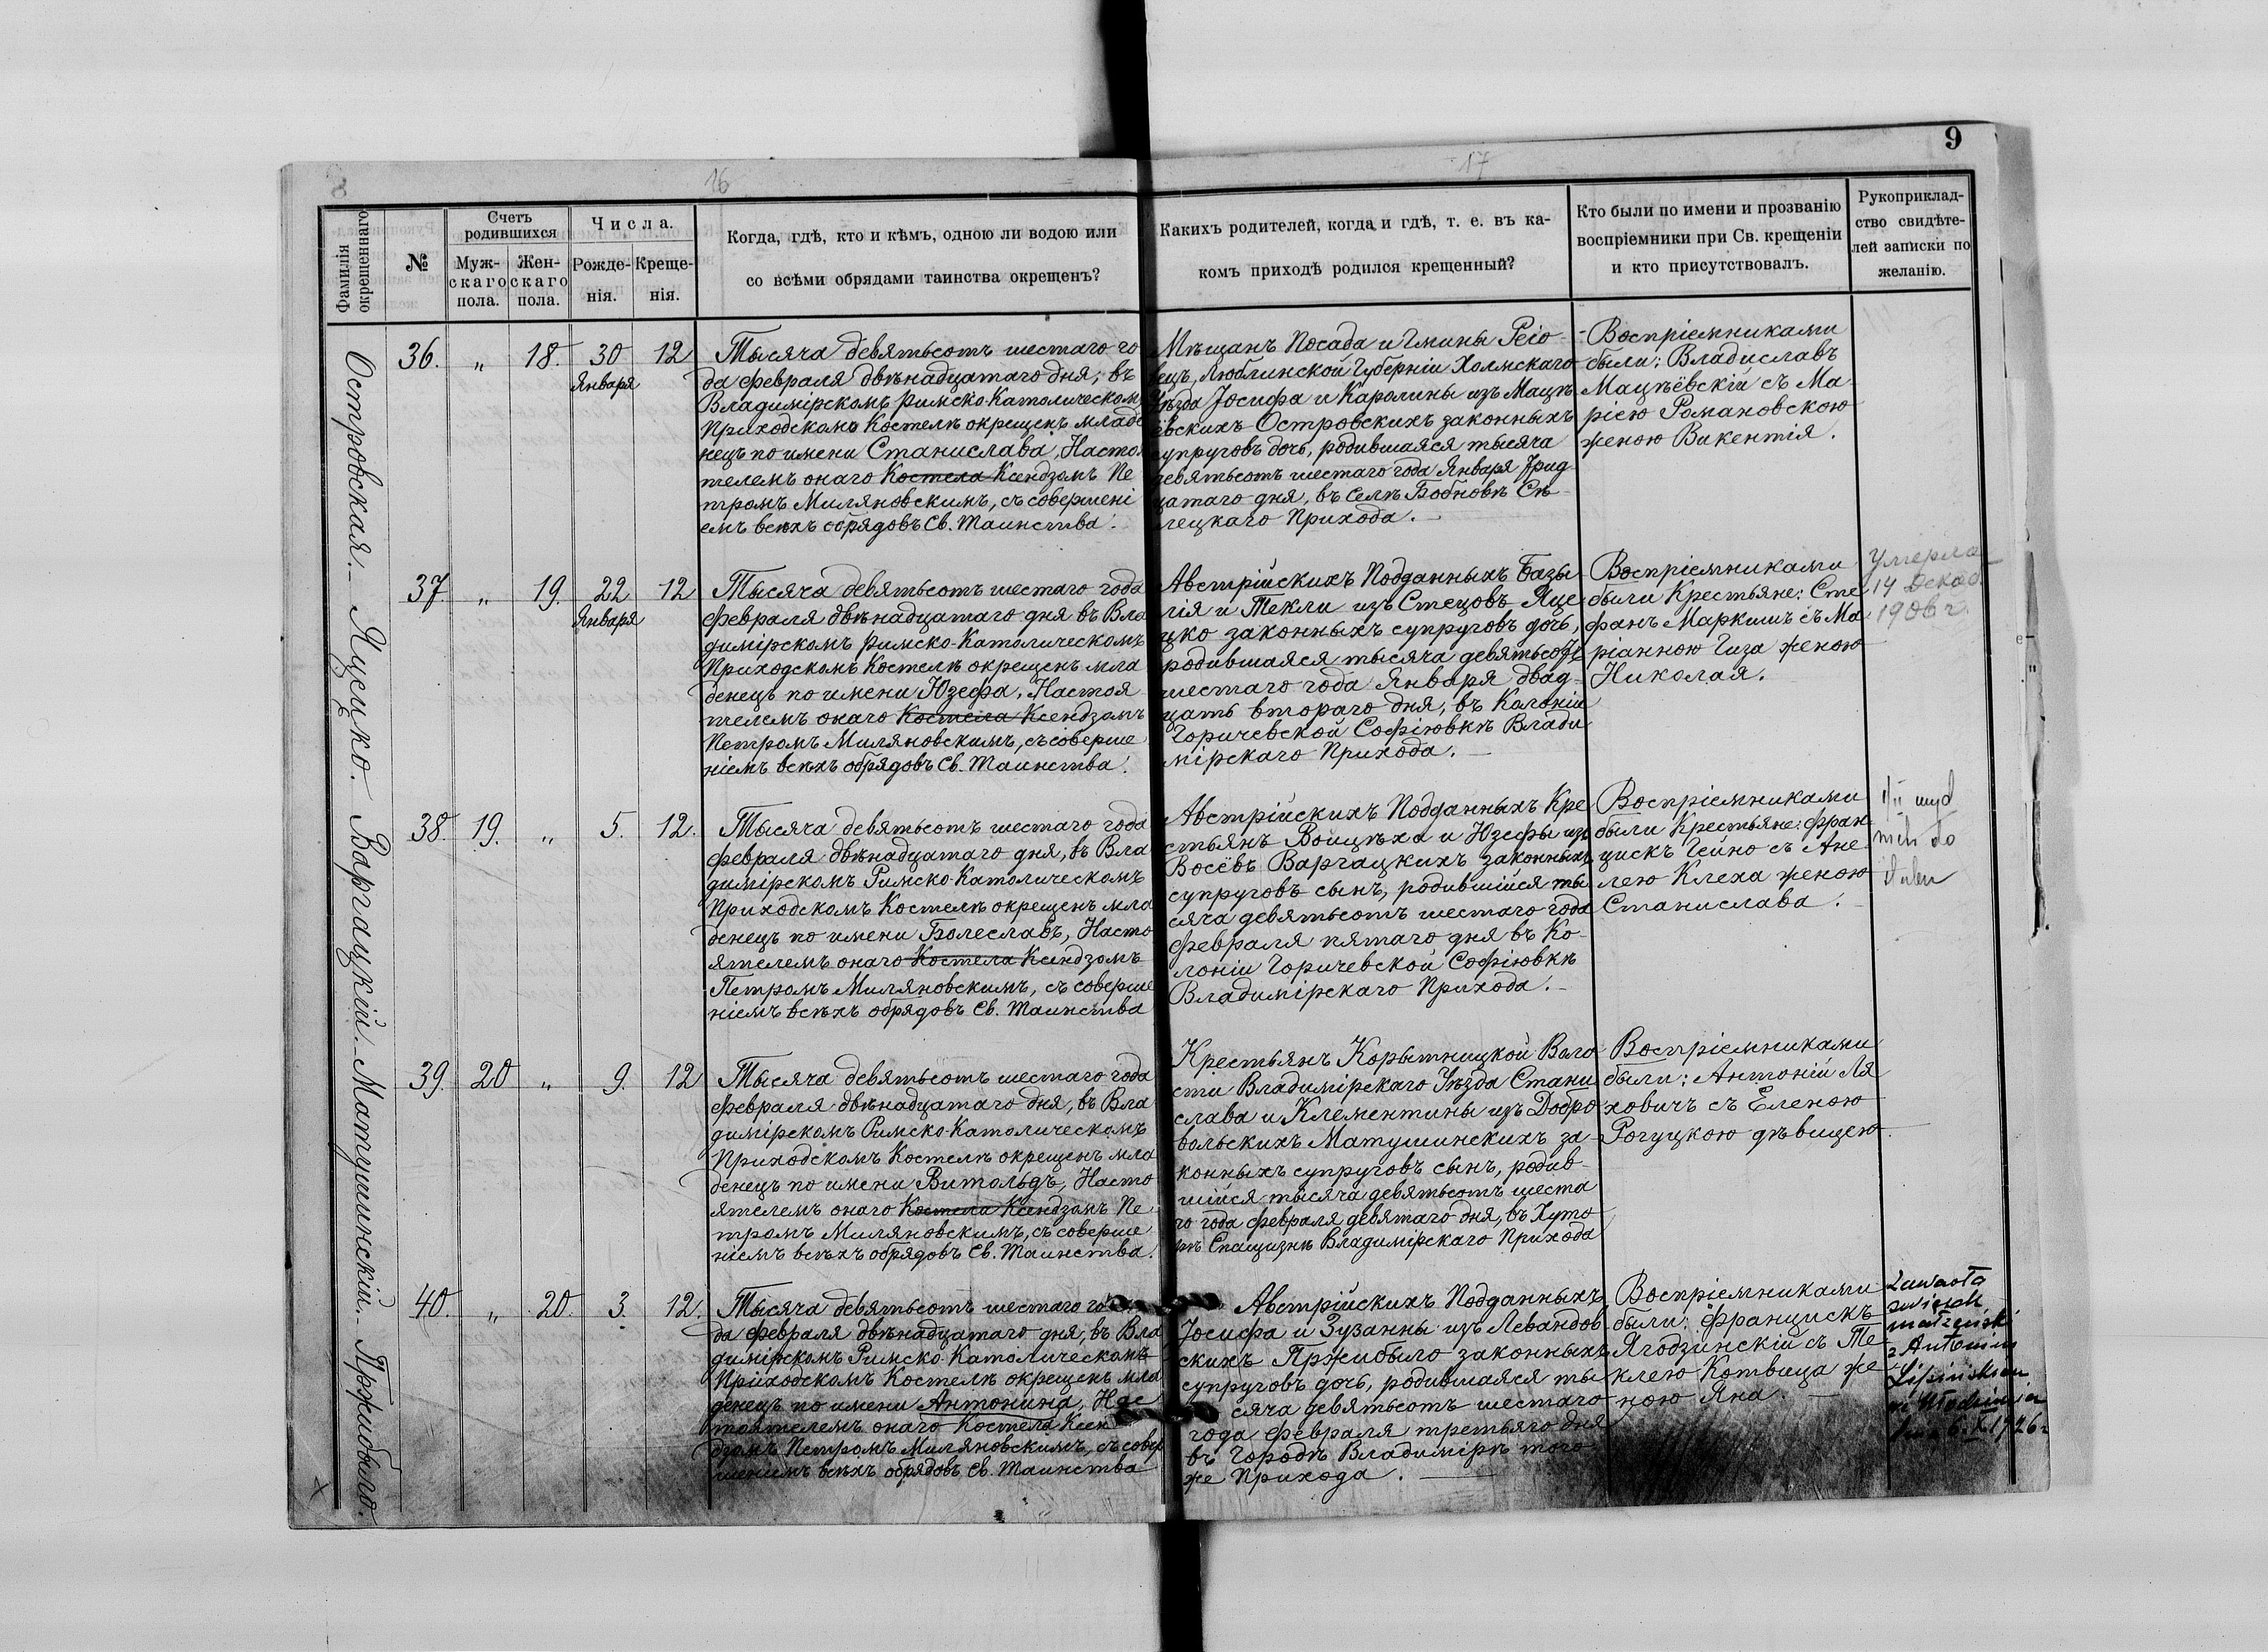 9
8
16
17
Фамилія окрещеннаго
№
Счетъ родившихся
Мужскаго пола.
Женскаго пола.
Числа.
Рожденія.
Крещенія.
Когда, гдѣ, кто и кѣмъ, одною ли водою или
со всѣми обрядами таинства окрещенъ?
Какихъ родителей, когда и гдѣ, т. е. въ ка-
комъ приходѣ родился крещенный?
Кто были по имени и прозванію
воспріемники при Св. крещеніи
и кто присутствовалъ.
Рукоприклад-
ство свидѣте-
лей записки по
желанію.
Островская.
36.
"
18.
30
Января
12
Тысяча девятьсотъ шестаго го
да февраля двѣнадцатаго дня, въ
Владимірскомъ Римско-Католическом
Приходскомъ Костелѣ окрещенъ младе
нецъ по имени Станислава, Насто
телемъ онаго Костела Ксендзомъ Пе
тромъ Миляновскимъ, съ совершені
емъ всѣхъ обрядовъ Св. Таинства.
Мѣщанъ Посада и Гмины Реіо-
вецъ, Люблинской Губерніи Холмскаго
Уѣзда Іосифа и Каролины изъ Мацѣ
ёвскихъ Островскихъ законныхъ
супруговъ дочь, родившаяся тысяча
девятьсотъ шестаго года Января Трид-
цатаго дня, въ Селѣ Бобновѣ Сѣ-
лецкаго Прихода.
Воспріемниками
были: Владиславъ
Мацѣёвскій съ Ма-
ріею Романовскою
женою Викентія.
Яцецко.
37.
"
19.
22
Января
12
Тысяча девятьсотъ шестаго года
февраля двѣнадцатаго дня въ Вла
димірскомъ Римско-Католическомъ
Приходскомъ Костелѣ окрещенъ мла
денецъ по имени Юзефа, Настоя
телемъ онаго Костела Ксендзомъ
Петромъ Миляновскимъ, съ соверше
ніемъ всѣхъ обрядовъ Св. Таинства.
Австрійскихъ Подданныхъ Базы
лія и Текли изъ Стецовъ Яце
цко законныхъ супруговъ дочь,
родившаяся тысяча девятьсотъ
шестаго года Января двад-
цать втораго дня, въ Колоніи
Горичевской Софіювкѣ Влади
мірскаго Прихода.
Воспріемниками
были Крестьяне: Сте
фанъ Маркишъ съ Ма
ріанною Гиза женою
Николая.
Умерла
14 Декаб.
1906 г.
Варгацкій.
38.
19.
"
5.
12.
Тысяча девятьсотъ шестаго года
февраля двѣнадцатаго дня, въ Вла
димірскомъ Римско-Католическомъ
Приходскомъ Костелѣ окрещенъ мла
денецъ по имени Болеславъ, Насто
ятелемъ онаго Костела Ксендзомъ
Петромъ Миляновскимъ, съ соверше
ніемъ всѣхъ обрядовъ Св. Таинства
Австрійскихъ Подданныхъ Кре
стьянъ Войцѣха и Юзефы изъ
Восёвъ Варгацкихъ законныхъ
супруговъ сынъ, родившійся ты
сяча девятьсотъ шестаго года
февраля пятаго дня въ Ко-
лоніи Горичевской Софіювкѣ
Владимірскаго Прихода.
Воспріемниками
были Крестьяне: Фран
цискъ Гейно съ Ане
лею Клеха женою
Станислава.
Матушинскій.
39.
20
"
9.
12
Тысяча девятьсотъ шестаго года
февраля двѣнадцатаго дня, въ Вла
димірскомъ Римско-Католическомъ
Приходскомъ Костелѣ окрещенъ мла
денецъ по имени Витольдъ, Насто
ятелемъ онаго Костела Ксендзомъ Пе
тромъ Миляновскимъ, съ соверше
ніемъ всѣхъ обрядовъ Св. Таинства.
Крестьянъ Корытницкой Воло
сти Владимірскаго Уѣзда Стани
слава и Клементины изъ Добро
вольскихъ Матушинскихъ за-
конныхъ супруговъ сынъ, родив-
шійся тысяча девятьсотъ шеста
го года февраля девятаго дня, въ Хуто
рѣ Спащизнѣ Владимірскаго Прихода
Воспріемниками
были: Антоній Ля
ховичъ съ Еленою
Рогуцкою дѣвицею.
Пржибыло.
40.
"
20.
3.
12.
Тысяча девятьсотъ шестаго го
да февраля двѣнадцатаго дня, въ Вла
димірскомъ Римско-Католическомъ
Приходскомъ Костелѣ окрещенъ мла
денецъ по имени Антонина, Нас
тоятелемъ онаго Костела Ксен
дзомъ Петромъ Миляновскимъ, съ совер
шеніемъ всѣхъ обрядовъ Св. Таинства
Австрійскихъ Подданныхъ
Іосифа и Зузанны изъ Левандов
скихъ Пржибыло законныхъ
супруговъ дочь, родившаяся ты
сяча девятьсотъ шестаго
года февраля третьяго дня
въ Городѣ Владимірѣ того
же Прихода.
Воспріемниками
были: Францискъ
Ягодзинскій съ Те-
клею Котвица же
ною Яна.
Zawarła
związek
małżeński
z Antonim
Lipińskim
we Włodzimie
6.X.1926 r
x